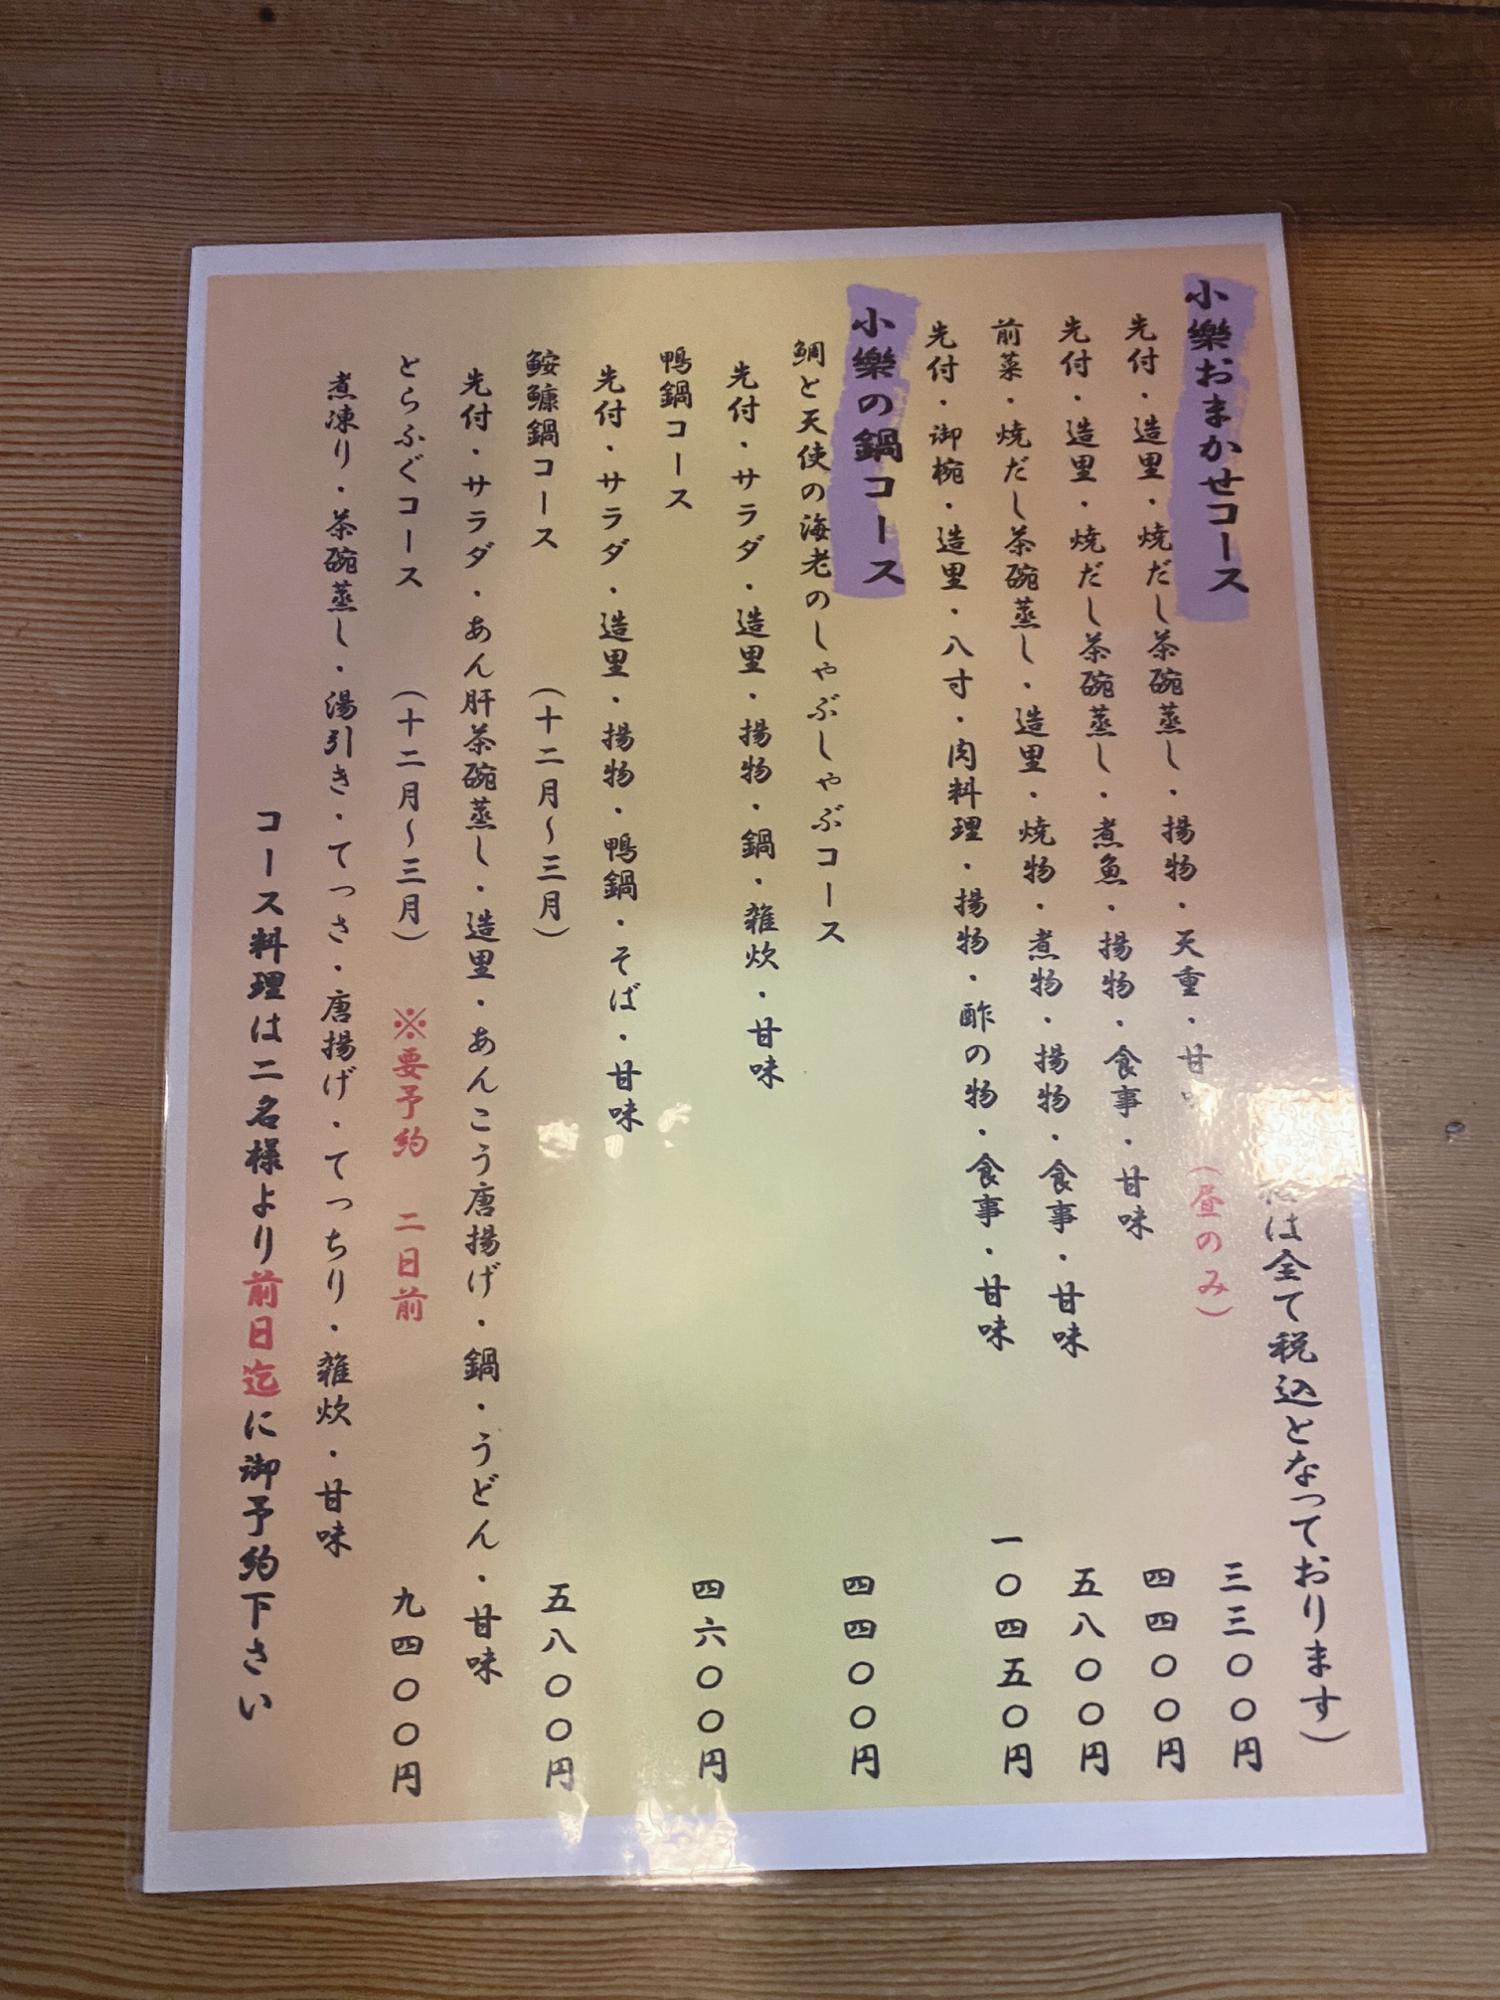 は全て税込となっております)
小樂おまかせコース
(昼のみ) 三三〇〇円
先付・造里・焼だし茶碗蒸し・揚物・天重・甘
四四〇〇円
先付・造里・焼だし茶碗蒸し・煮魚・揚物・食事・甘味
五八〇〇円
前菜・焼だし茶碗蒸し・造里・焼物・煮物・揚物・食事・甘味
一〇四五〇円
先付・御椀・造里・八寸・肉料理・揚物・酢の物・食事・甘味
小樂の鍋コース
鯛と天使の海老のしゃぶしゃぶコース 四四〇〇円
先付・サラダ・造里・揚物・鍋・雑炊・甘味
鴨鍋コース 四六〇〇円
先付・サラダ・造里・揚物・鴨鍋・そば・甘味
鮟鱇鍋コース (十二月〜三月) 五八〇〇円
先付・サラダ・あん肝茶碗蒸し・造里・あんこう唐揚げ・鍋・うどん・甘味
とらふぐコース (十二月〜三月) ※要予約 二日前 九四〇〇円
煮凍り・茶碗蒸し・湯引き・てっさ・唐揚げ・てっちり・雑炊・甘味
コース料理は二名様より前日迄に御予約下さい